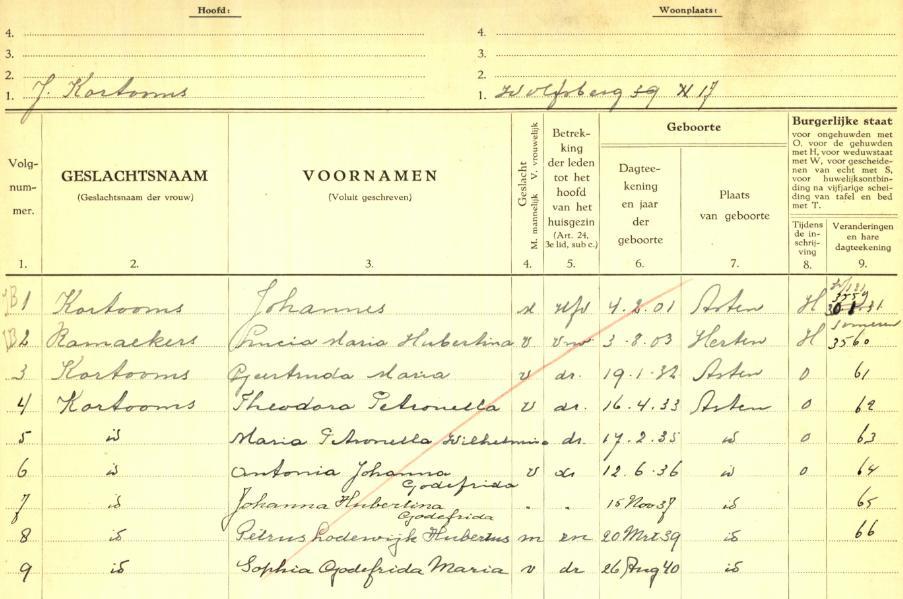 Hoofd: Woonplaats:
4. 4.
3. 3.
2. 2.
1. J. Kortooms 1. Wolfsberg 39 H 17
Volg-
num-
mer.
GESLACHTSNAAM
(Geslachtsnaam der vrouw)
VOORNAMEN
(Voluit geschreven)
Geslacht
M. mannelijk V. vrouwelijk
Betrek-
king
der leden
tot het
hoofd
van het
huisgezin
(Art. 24,
3e lid, sub c.)
Geboorte
Dagtee-
kening
en jaar
der
geboorte
Plaats
van geboorte
Burgerlijke staat
voor ongehuwden met
O, voor de gehuwden
met H, voor weduwstaat
met W, voor gescheide-
nen van echt met S,
voor huwelijksontbin-
ding na vijfjarige schei-
ding van tafel en bed
met T.
Tijdens
de in-
schrij-
ving
Veranderingen
en hare
dagteekening
1. 2. 3. 4. 5. 6. 7. 8. 9.
1 Kortooms Johannes 4.2.01 Asten H 3559
2 Ramaekers Maria Hubertina v 3-8.03 Herten H Someren 3560
3 Kortooms Geertruda Maria v dr. 19.1.32 Asten O 61
4 Kortooms Theodora Petronella v dr. 16.4.33 Asten O 62
5 id Maria Petronella Wilhelmina dr. 17.2.35 id O 63
6 id Antonia Johanna Godefrida v dr 12.6.36 id O 64
7 id Johanna Hubertina Godefrida " " 15 Nov 37 id 65
8 id Petrus Lodewijk Hubertus m zn 20 Mrt 39 id 66
9 id Sophia Godefrida Maria v dr 26 Aug 40 id